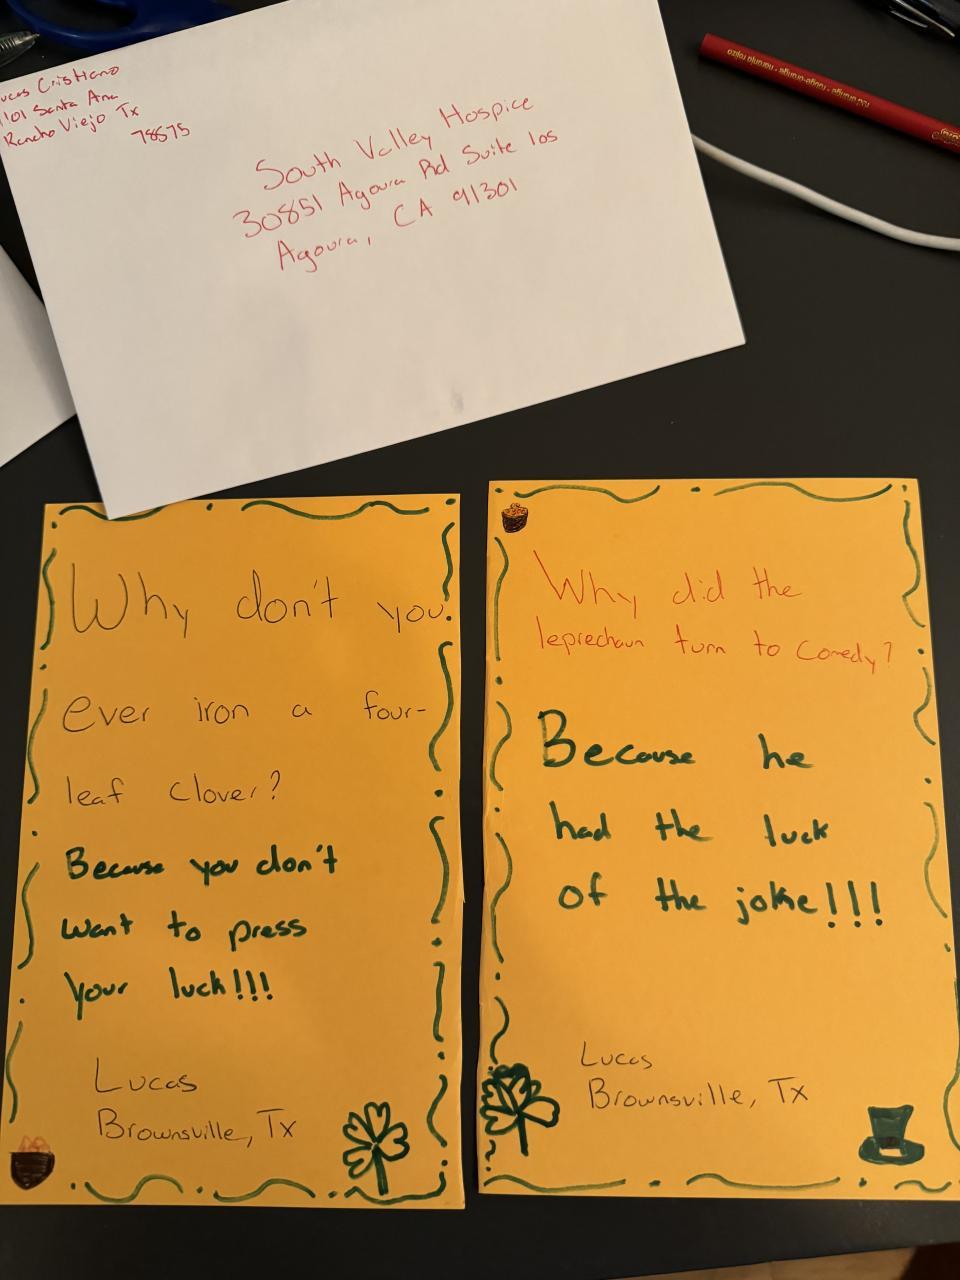 Lucas Cristiano
Santa Ana
Rancho Viejo Tx
78575
South Valley Hospice
30851 Agoura Rd Suite 105
Agoura, CA 91301
red orange • rouge-orange • naranja rojizo
Why don't you
ever iron a four-
leaf clover?
Because you don't
want to press
your luck!!!
Lucas
Brownsville, Tx
Why did the
leprechaun turn to comedy?
Because he
had the luck
of the joke!!!
Lucas
Brownsville, Tx